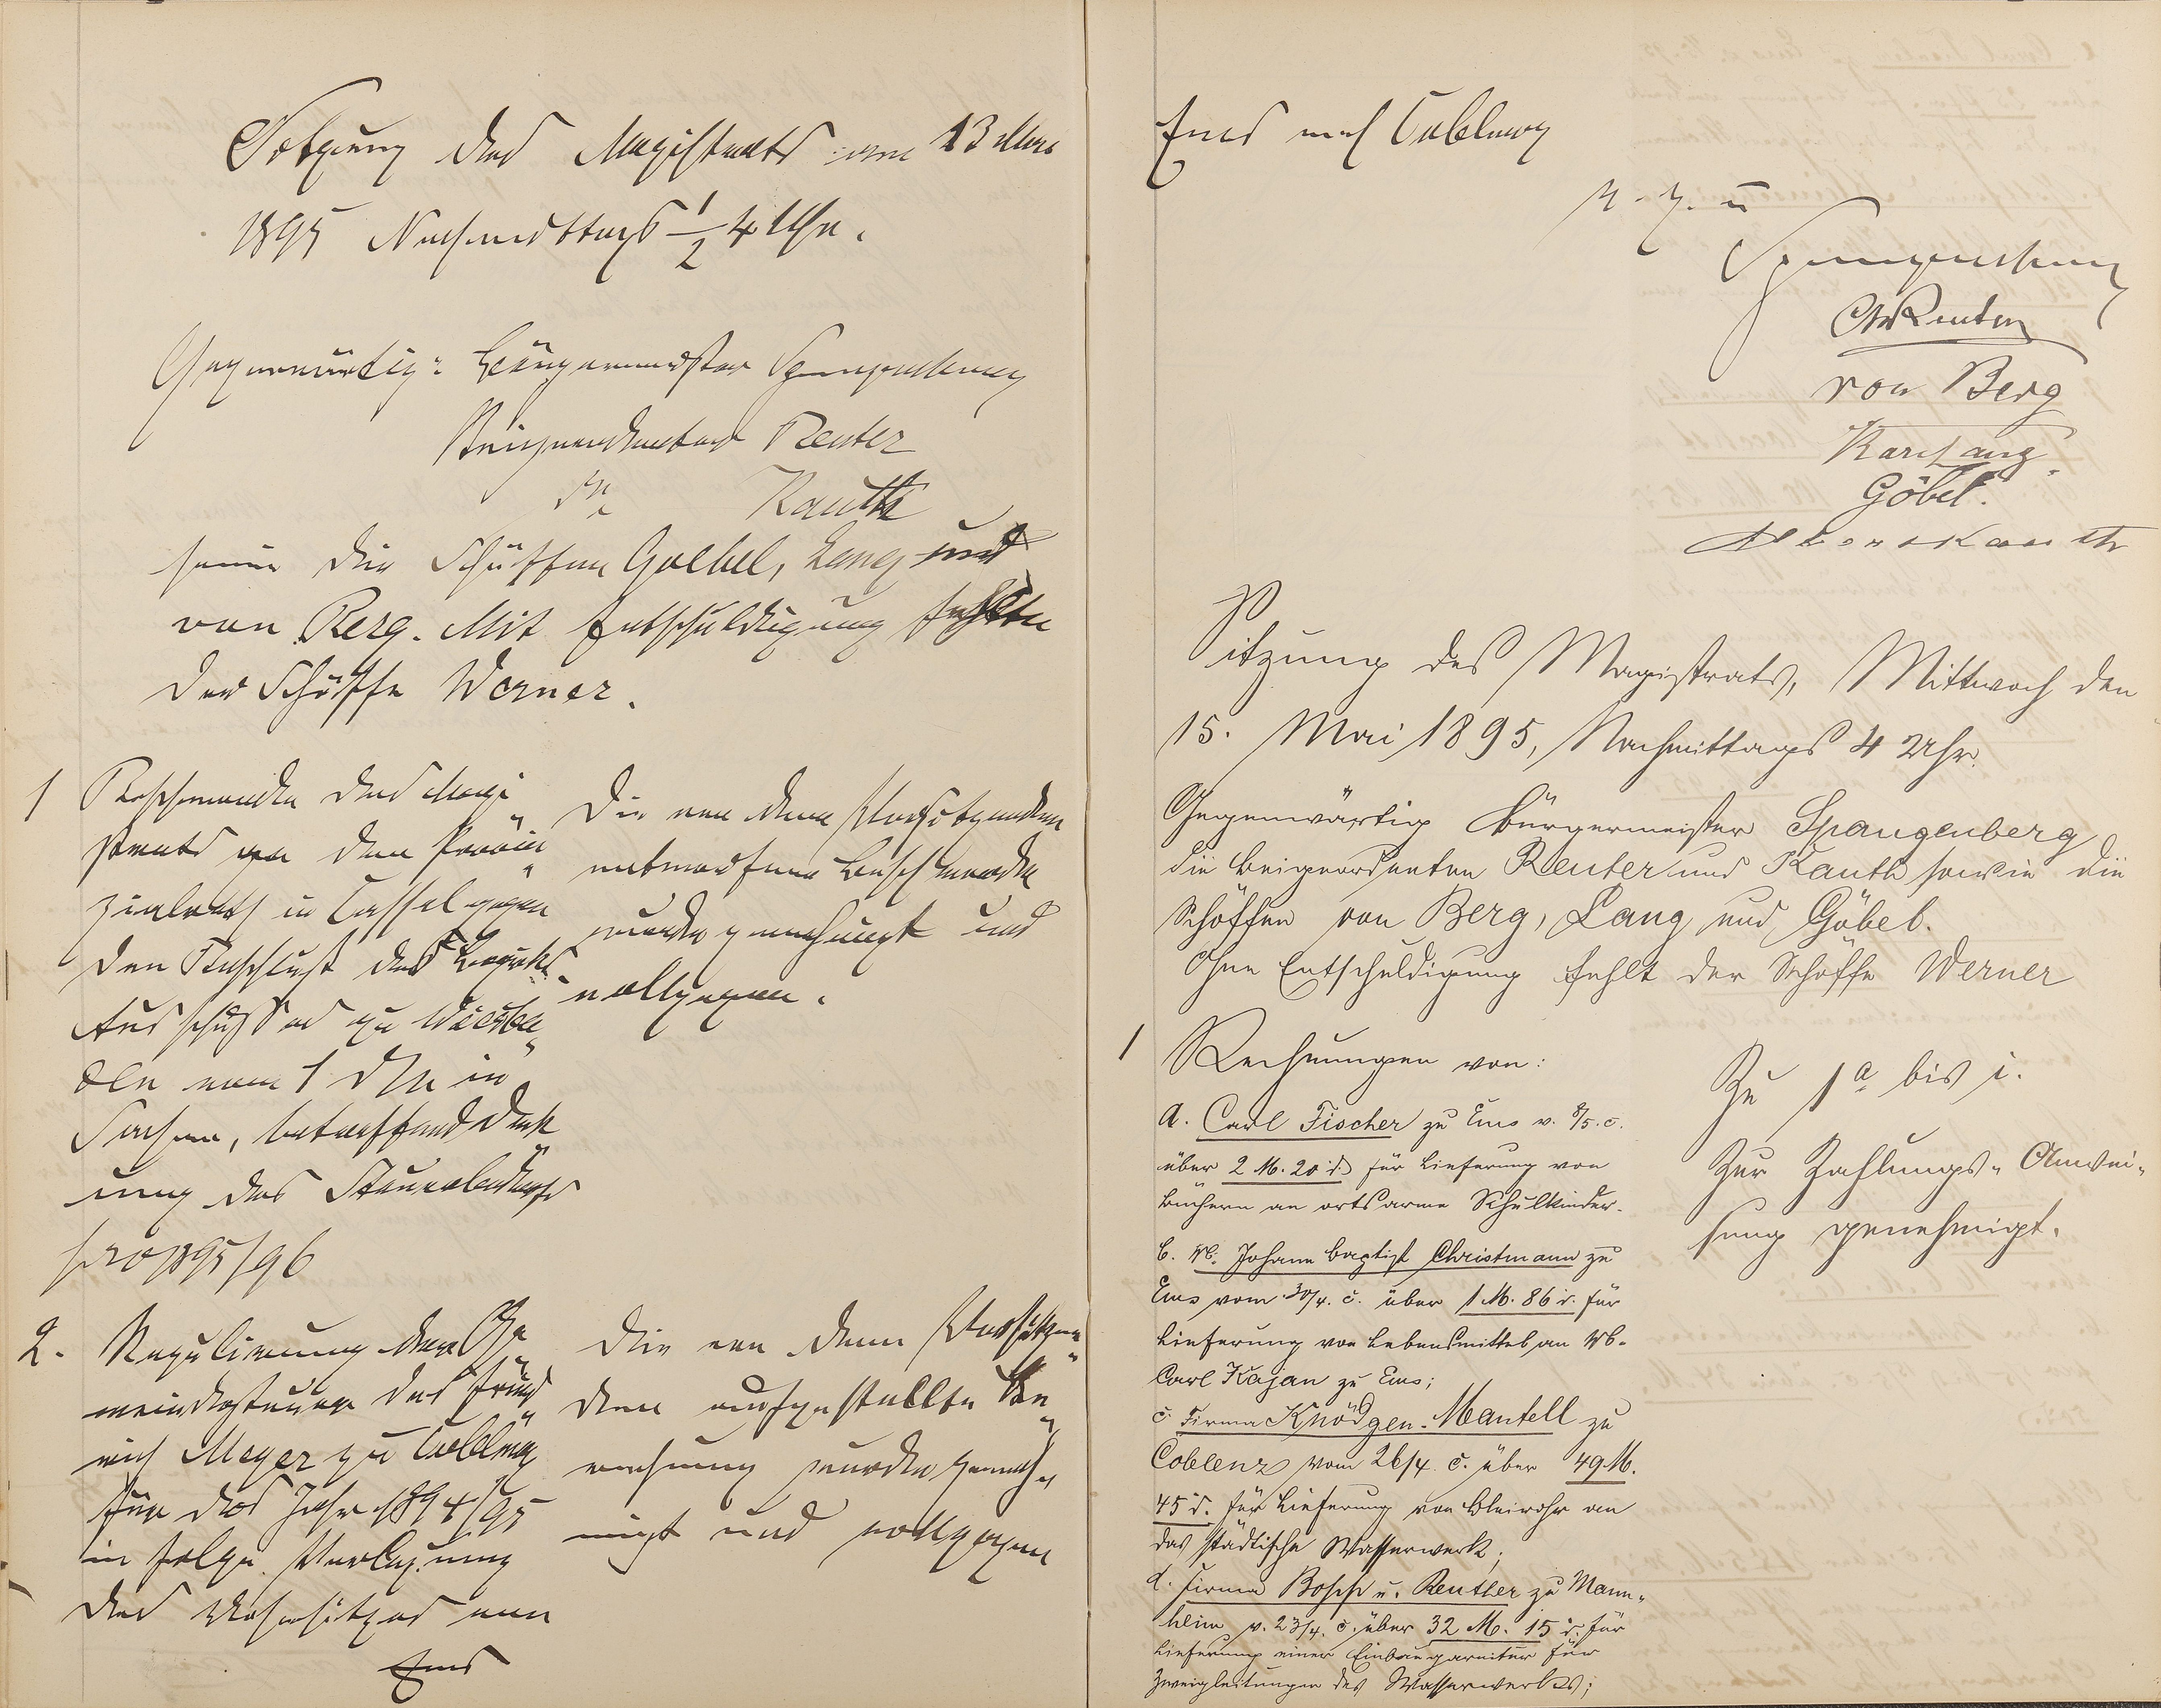 Sitzung des Magistrats vom 13 Mai
1895 Nachmittags ½ 4 Uhr.
Gegenwärtig: Bürgermeister Spangenberg
Beigeordneter Reuter
Kauth
sowie die Schöffen Goebel, Lang und
von Berg. Mit Entschuldigung fehlte
der Schöffe Werner.
1 Beschwerde des Magi„
strats an den Provin„
zialrath in Cassel gegen
den Beschluß des Bezirks-
Ausschusses zu Wiesba„
den vom 1 in
Sachen, betreffend Deck„
ung des Steuerbedarfs
pro 1895/96
Die von dem Vorsitzenden
entworfene Beschwerde
wurde genehmigt und
vollzogen.
2. Regulirung der Ge„
meindesteuer des Fried„
rich Meyer zu Coblenz
für das Jahr 1894/95
in Folge Verlegung
des Wohnsitzes von
Ems
Die von dem Vorsitzen„
den aufgestellte Be„
rechnung wurde geneh„
migt und vollzogen
Ems nach Coblenz
Spangenberg
Reuter
von Berg
Karl Lang.
Göbel.
Albert Kauth
Sitzung des Magistrats, Mittwoch den
15. Mai 1895, Nachmittags 4 Uhr.
Gegenwärtig Bürgermeister Spangenberg
die Beigeordneten Reuter und Kauth sowie die
Schöffen von Berg, Lang und Göbel.
Ohne Entschuldigung fehlt der Schöffe Werner
1 Rechnungen von:
a. Carl Fischer zu Ems v. 8/5. c.
über 2 M. 20 d. für Lieferung von
Büchern an ortsarme Schulkinder.
b. Wb. Johann Baptist Christmann zu
Ems vom 30/4. c. über 1 M. 86 d. für
Lieferung von Lebensmittel an Wb.
Carl Kajan zu Ems;
c. Firma Knödgen-Mantell zu
Coblenz vom 26/4. c. über 49 M.
45 d. für Lieferung von Bleirohr an
das städtische Wasserwerk;
d. Firma Bopp u. Reuther zu Mann„
heim v. 23/4. c. über 32 M. 15 d. für
Lieferung einer Einbaugarnitur für
Zweigleitungen des Wasserwerkes;
Zu 1a bis i.
Zur Zahlungs-Anwei„
sung genehmigt.